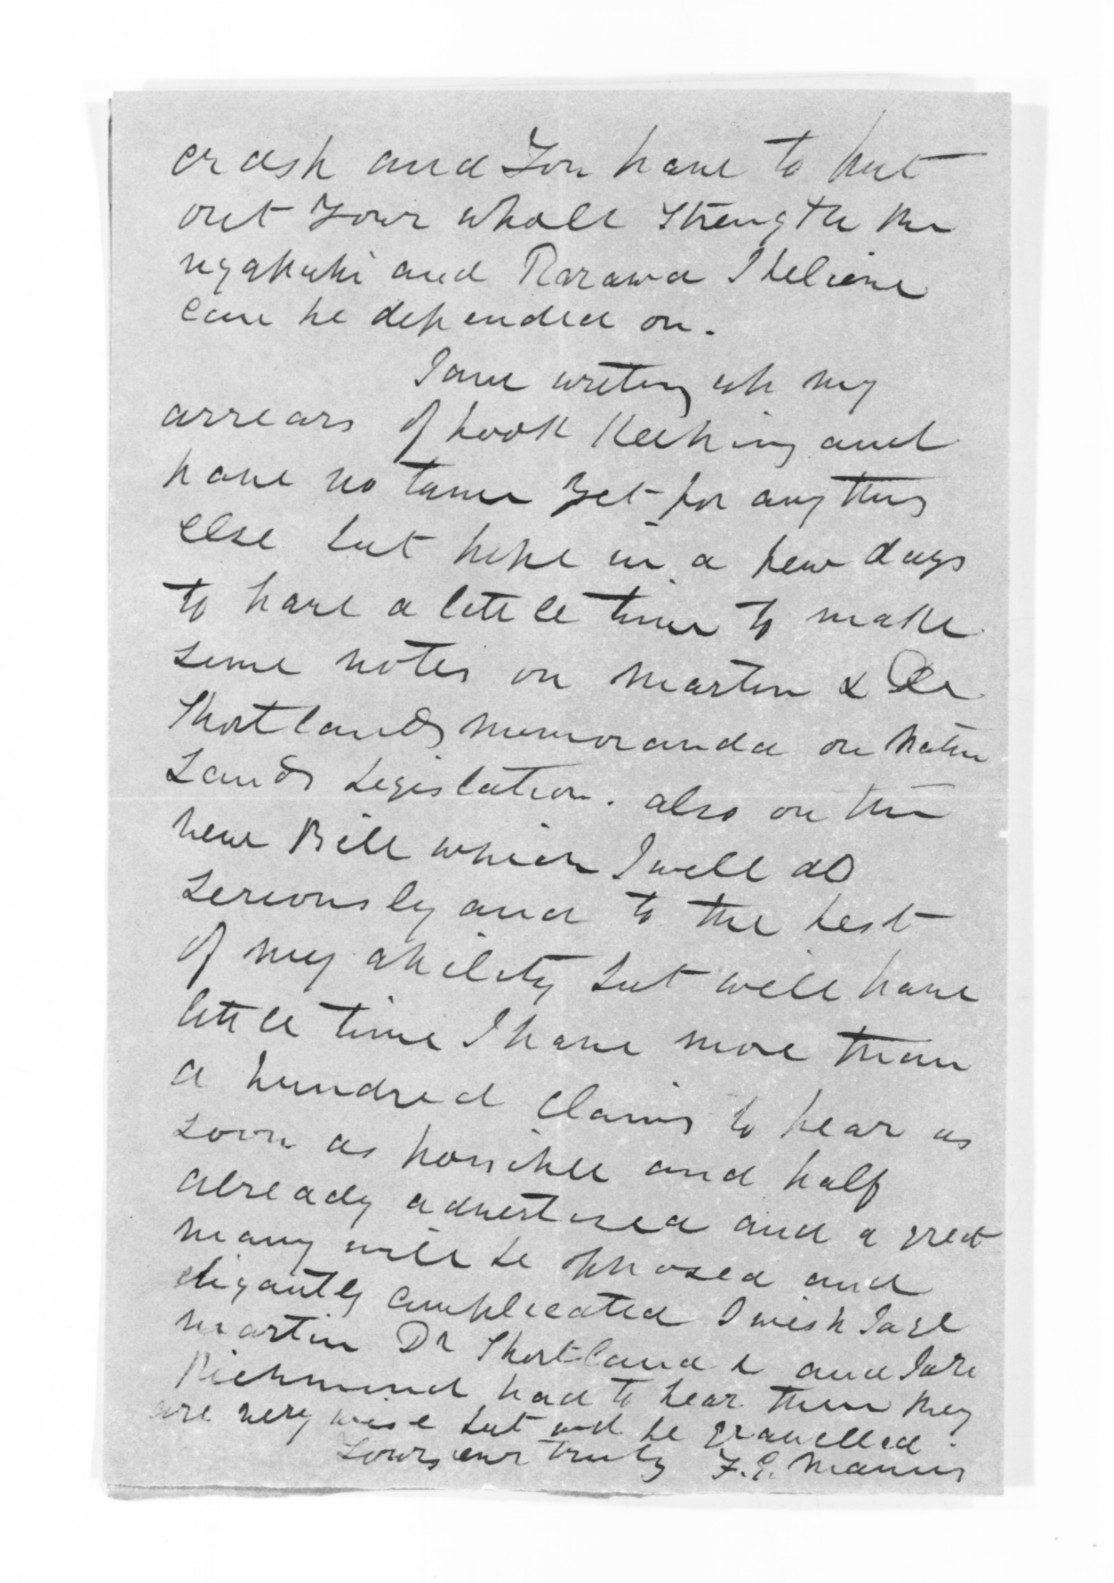 crash and You have to put
out Your whole strength the
ngapuhi and Rarawa I believe
can be depended on.
I am writing up my
arrears of book keeping and
have no time yet for any thing
else but hope in a few days
to have a little time to make
some notes on Martin & Dr
Shortlands memoranda on Native
Lands Legislation. also on the
new Bill which I will do
seriously and to the best
of my ability but will have
little time I have more than
a hundred claims to hear as
soon as possible and half
already advertised and a great
many will be opposed and
elegantly complicated I wish Judge
Martin Dr Shortland & and
Richmond had to hear them they
are very wise but wd be gravelled.
Yours ever truly F.E. Maning